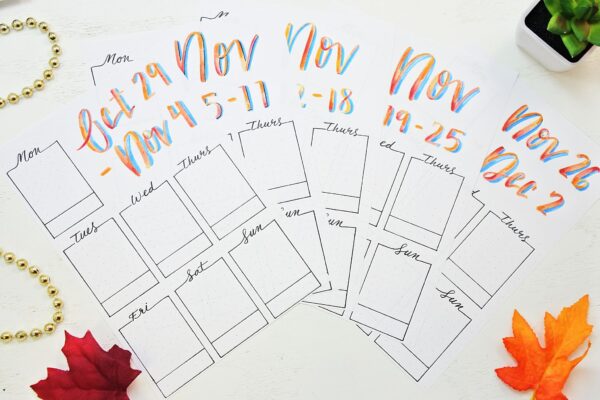 Oct 29
- Nov 4
Mon
Tues
Wed
Thurs
Fri
Sat
Sun
Mon
Nov
5-11
Thurs
Nov
-18
Thurs
Nov
19-25
Thurs
Sun
Nov 26
Dec 2
Thurs
Sun